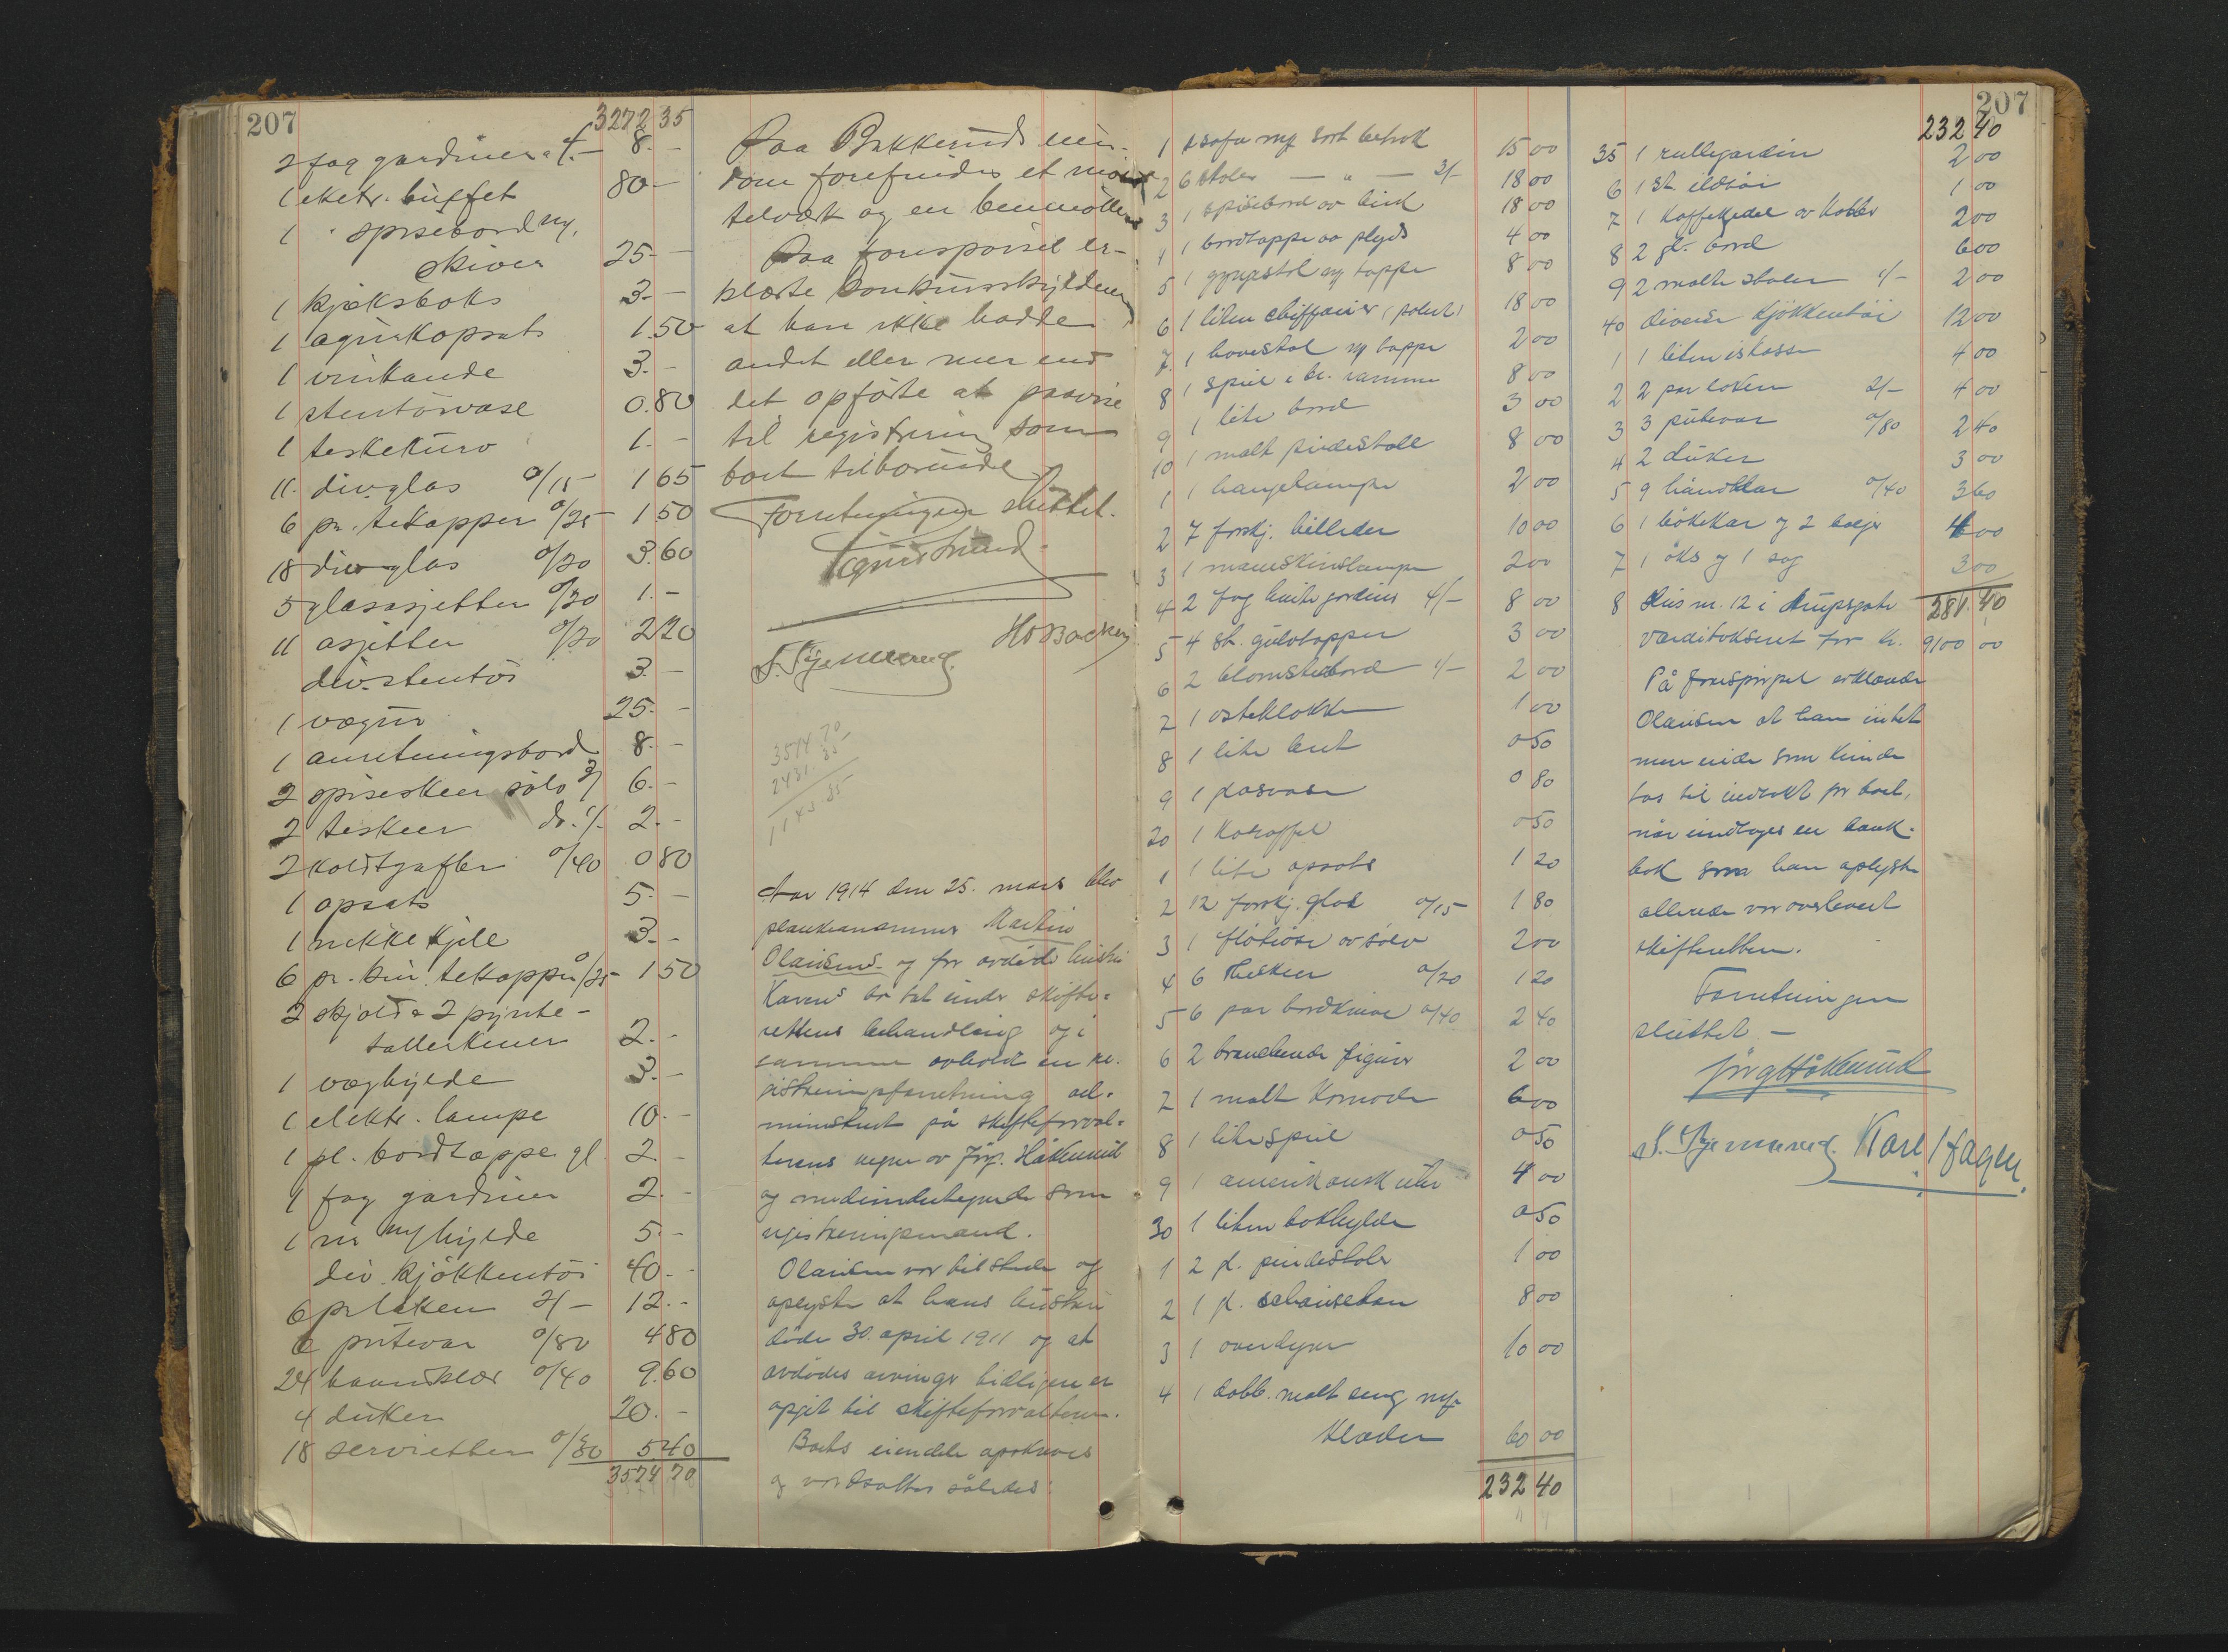 207
3272 35
2 fag gardiner a 4.– 8.–
1 eketr. buffet 80.–
1 " spisebord m/
skiver 25.–
1 kjæksboks 3.–
1 agurkopsats 1.50
1 vinkande 3.–
1 stentöivase 0.80
1 teskekurv 1.–
11 div. glas 0/15 1 65
6 pr. tekopper 0/25 1 50
18 div glas 0/20 3.60
5 glasasjetter 0/20 1.–
11 asjetter 0/20 2 20
div. stentöi 3.–
1 vægur 25.–
1 anretningsbord 8.–
2 spiseskeer sölv 3/ 6.–
2 teskeer do. 1/– 2.–
2 koldtgafler 0/40 0 80
1 opsats 5.–
1 nikkelkjele 3.–
6 pr. kin. tekopper 0/25 1 50
2 skjold & 2 pynte-
tallerkener 2.–
1 væghylde 3.–
1 elektr. lampe 10.–
1 pl. bordtæppe gl. 2.–
1 fag gardiner 2.–
1 hylde 5.–
div. kjökkentöi 40.–
6 pr laken 2/– 12.–
6 putevar 0/80 4 80
24 haandklær 0/40 9.60
4 duker 20.–
18 servietter 0/30 5.40
3574 70
Paa Bakkerud eien-
dom forefindes et
telværk og en benmölle
Paa forespörsel er-
klærte konkursskyldneren
at han ikke hadde
andet eller mer end
det opförte at paavise
til registrering som
boet tilhörende
Forretningen sluttet.
3514 70
2431. 35
1143 35
Aar 1914 den 25. mars blev
plankeanammer Martin
Olausens og før avdöde hustru
Karens bo tat under skifte-
rettens behandling og i
samme avholdt en re-
gistreringsforretning ad-
ministrert på skifteforval-
terens vegne av Jörg. Håkerud
og medundertegnede som
registreringsmænd.
Olausen var tilstede og
oplyste at hans hustru
döde 30. april 1911 og at
avdödes arvinger tidligere er
opgit til skifteforvalteren.
Boets eiendele opskreves
og værdsattes således:
1 1 sofa m/ sort betræk 15 00
2 6 stoler – " – 3/– 18 00
3 1 spisebord av birk 18 00
4 1 bordtæppe av plyds 4 00
5 1 gyngestol m/ tæppe 8 00
6 1 liten chiffonier (polert) 18 00
7 1 hovestol m/ tæppe 2 00
8 1 speil i br. ramme 8 00
9 1 lite bord 3 00
10 1 malt pindestoll 8 00
1 1 hængelampe 2 00
2 7 forskj. billeder 10 00
3 1 maneskinslampe 2 00
4 2 fag hvite gardiner 4/– 8 00
5 4 st. gulvtæpper 3 00
6 2 blomsterbord 1/– 2 00
7 1 osteklokke 1 00
8 1 lite bret 0 50
9 1 glasvase 0 80
20 1 karaffel 0 50
1 1 lite opsats 1 20
2 12 forskj. glas 0/15 1 80
3 1 flöteöse av sölv 2 00
4 6 theskeer 0/20 1 20
5 6 par bordknive 0/40 2 40
6 2 brændende figurer 2 00
7 1 malt komode 6 00
8 1 lite speil 0 50
9 1 amerikansk uhr 4 00
30 1 liten bokhylde 0 50
1 2 gl. pindestoler 1 00
2 1 gl. schæselon 8 00
3 1 overdyne 10 00
4 1 dobb. malt seng m/
klæder 60 00
232 40
207
232 40
35 1 rullegardin 2 00
6 1 st. ildtöi 1 00
7 1 kaffekjedel av kobber 2 00
8 2 gl. bord 6 00
9 2 malte stoler 1/– 2 00
40 diverse kjökkentöi 12 00
1 1 liten iskasse 4 00
2 2 par laken 2/– 4 00
3 3 putevar 0/80 2 40
4 2 duker 3 00
5 9 håndklær 0/40 3 60
6 1 bökekar og 2 baljer 4 00
7 1 öks og 1 sag 3 00
281 40
8 Hus nr. 12 i Krupsgate
værditakseret for kr. 9100 00
På forespörsel erklærede
Olausen at han intet
mer eiede som kunde
tas til indtækt for boet,
når undtages en bank-
bok som han oplyste
allerede var overlevert
skifteretten.
Forretningen
sluttet –
Jörg Håkerud